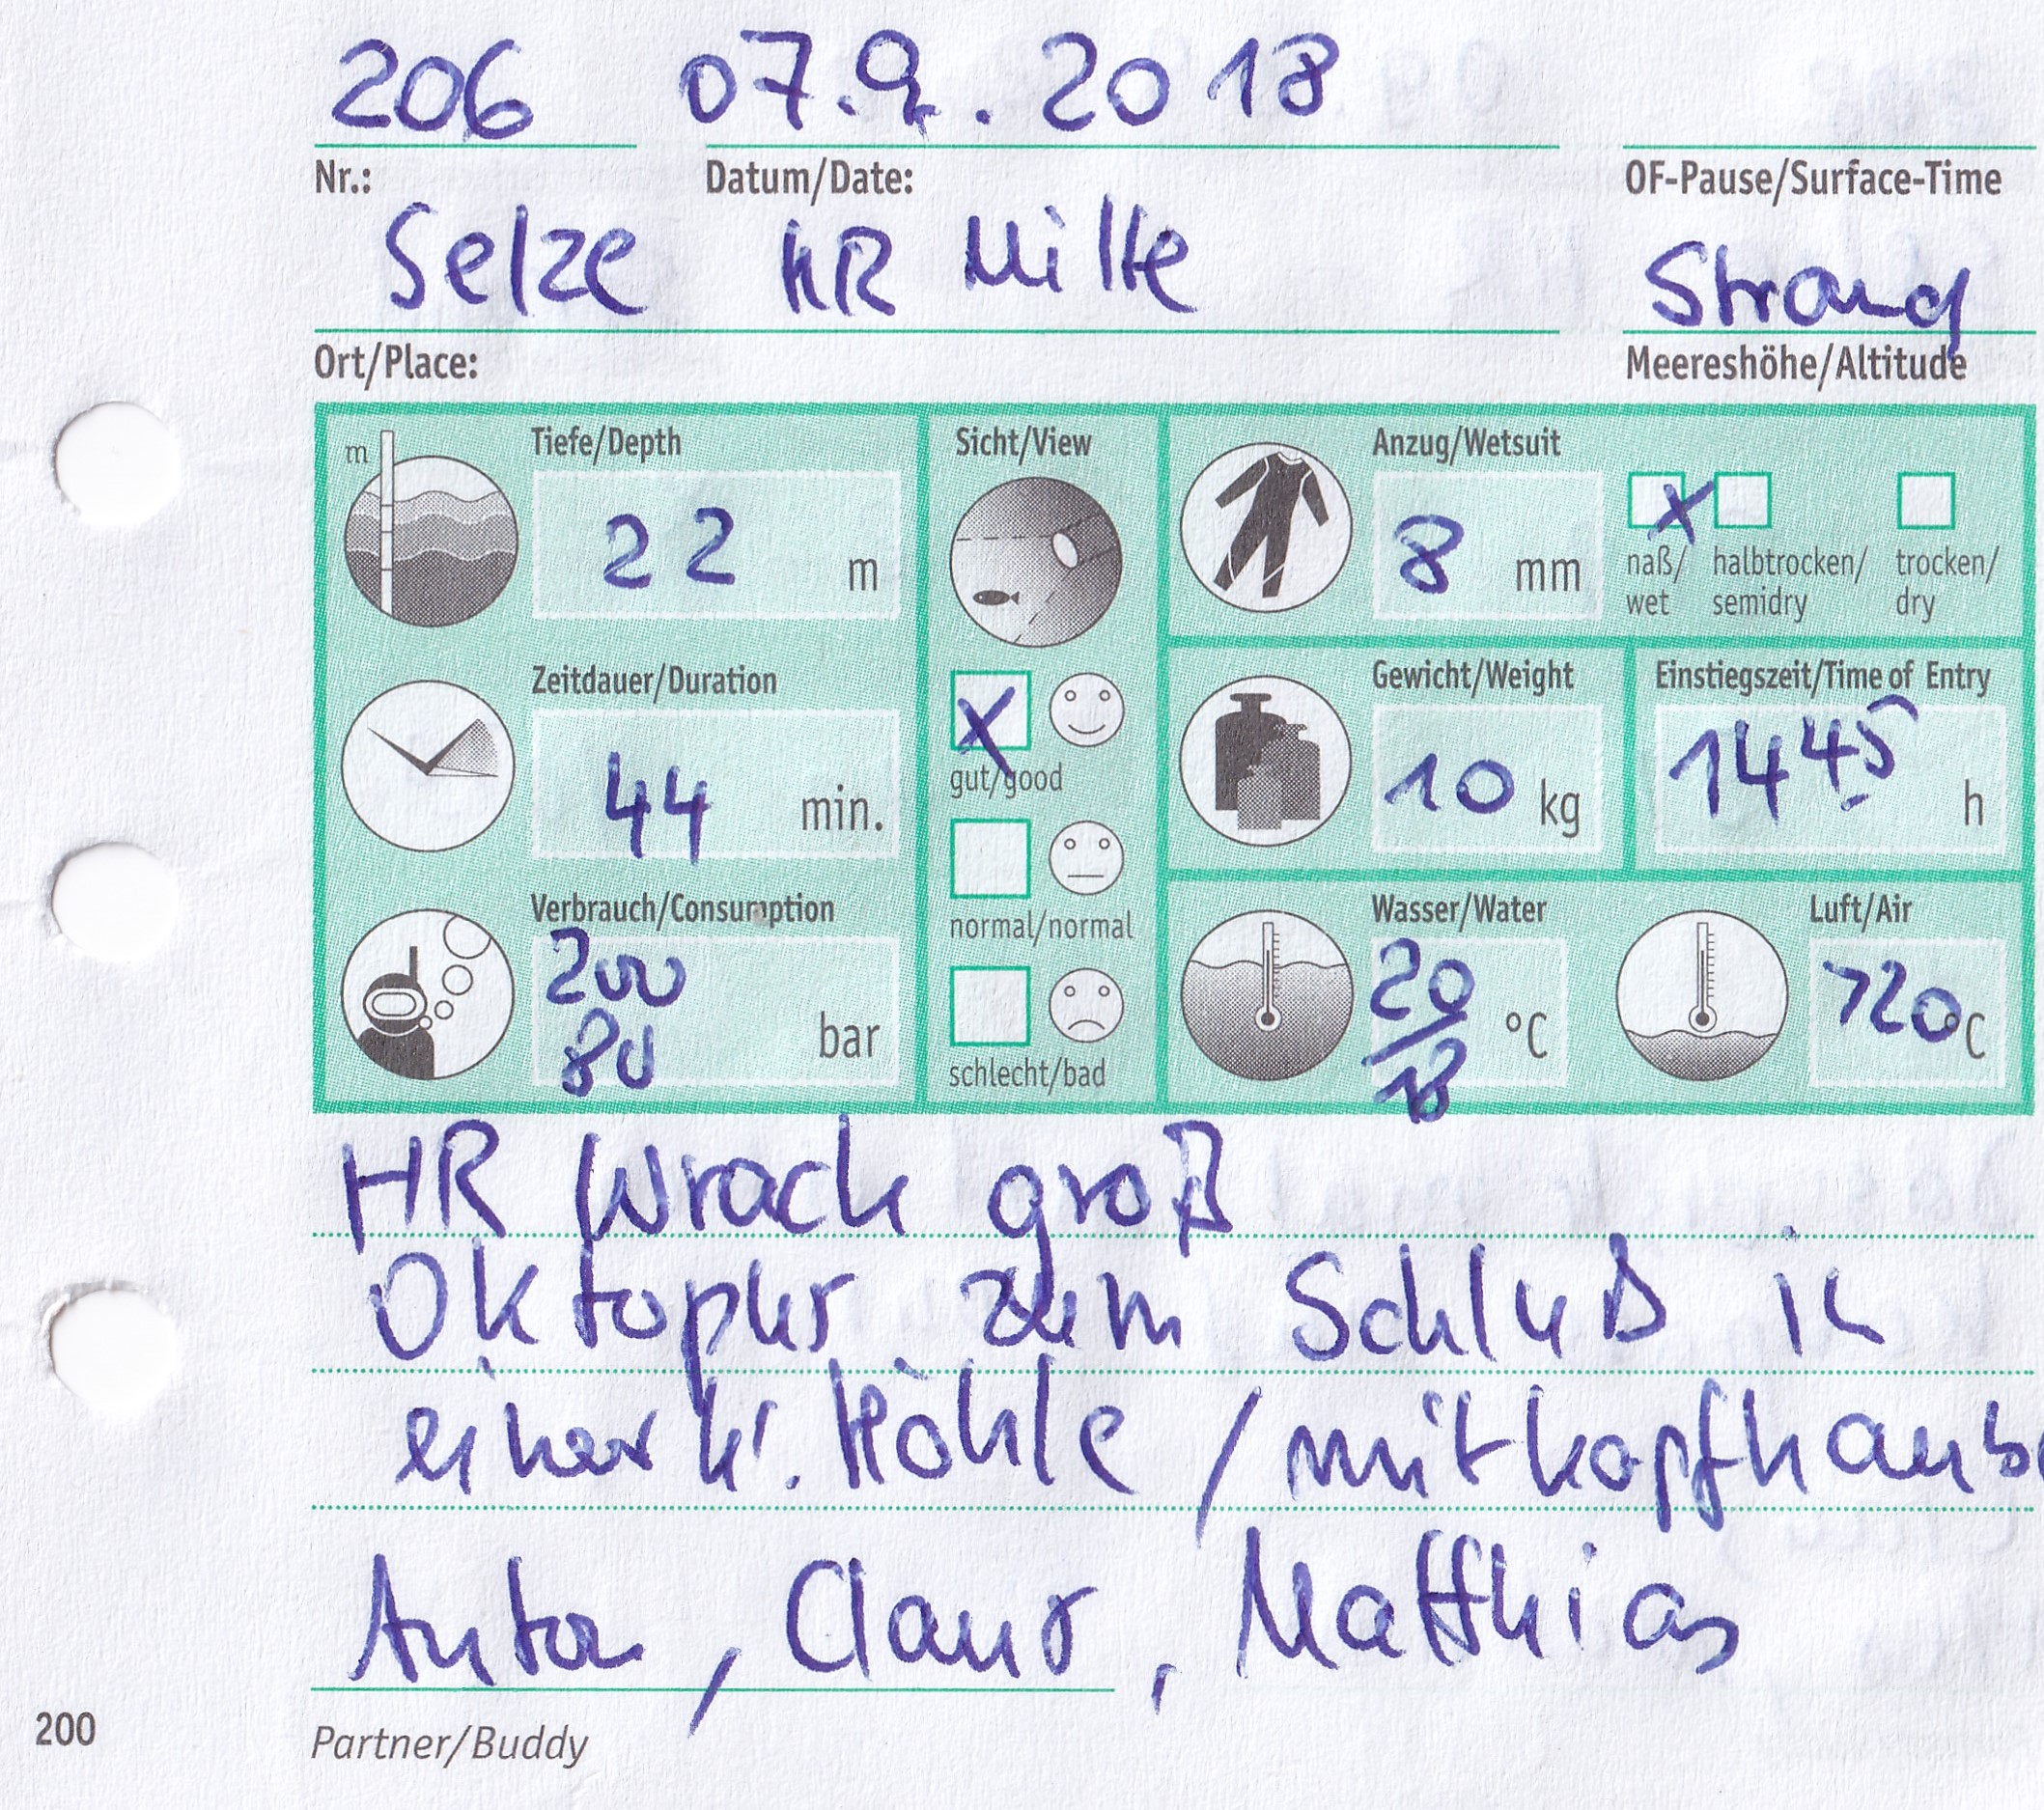 206 07.9.2018
Nr.: Datum/Date: OF-Pause/Surface-Time
Selze HR Mitte Strand
Ort/Place: Meereshöhe/Altitude
m Tiefe/Depth Sicht/View Anzug/Wetsuit
22 m 8 mm X
naß/ halbtrocken/ trocken/
wet semidry dry
Zeitdauer/Duration Gewicht/Weight Einstiegszeit/Time of Entry
44 min. X 10 kg 1445 h
gut/good
Verbrauch/Consumption normal/normal Wasser/Water Luft/Air
200 20 >20°C
80 bar 18 °C
schlecht/bad
HR Wrack groß
Oktopus zum Schluß in
einer kl. Höhle / mit Kopfhaube
Anton, Claus, Matthias
200 Partner/Buddy